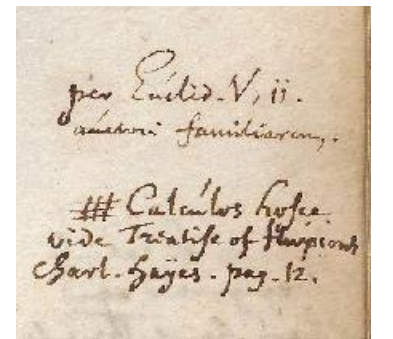 per Euclid. V, ii.
autori familiarem,.
### Calculos hosce
vide Treatise of fluxions
Charl. Hayes. pag. 12.